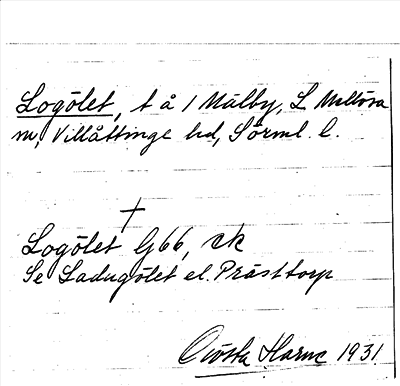 Logölet, t å 1 Målby, L. Mellösa
sn, Villåttinge hd, Sörml. l.
+
Logölet G66, sk
Se Ladugölet el. Prästtorp
Harne 1931